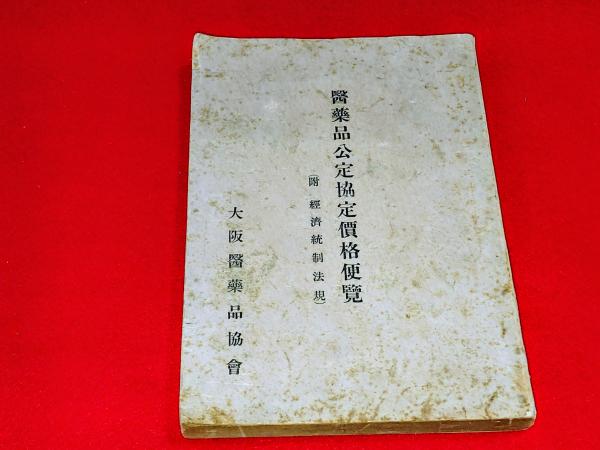 醫藥品公定協定價格便覽
(附 經濟統制法規)
大阪醫藥品協會